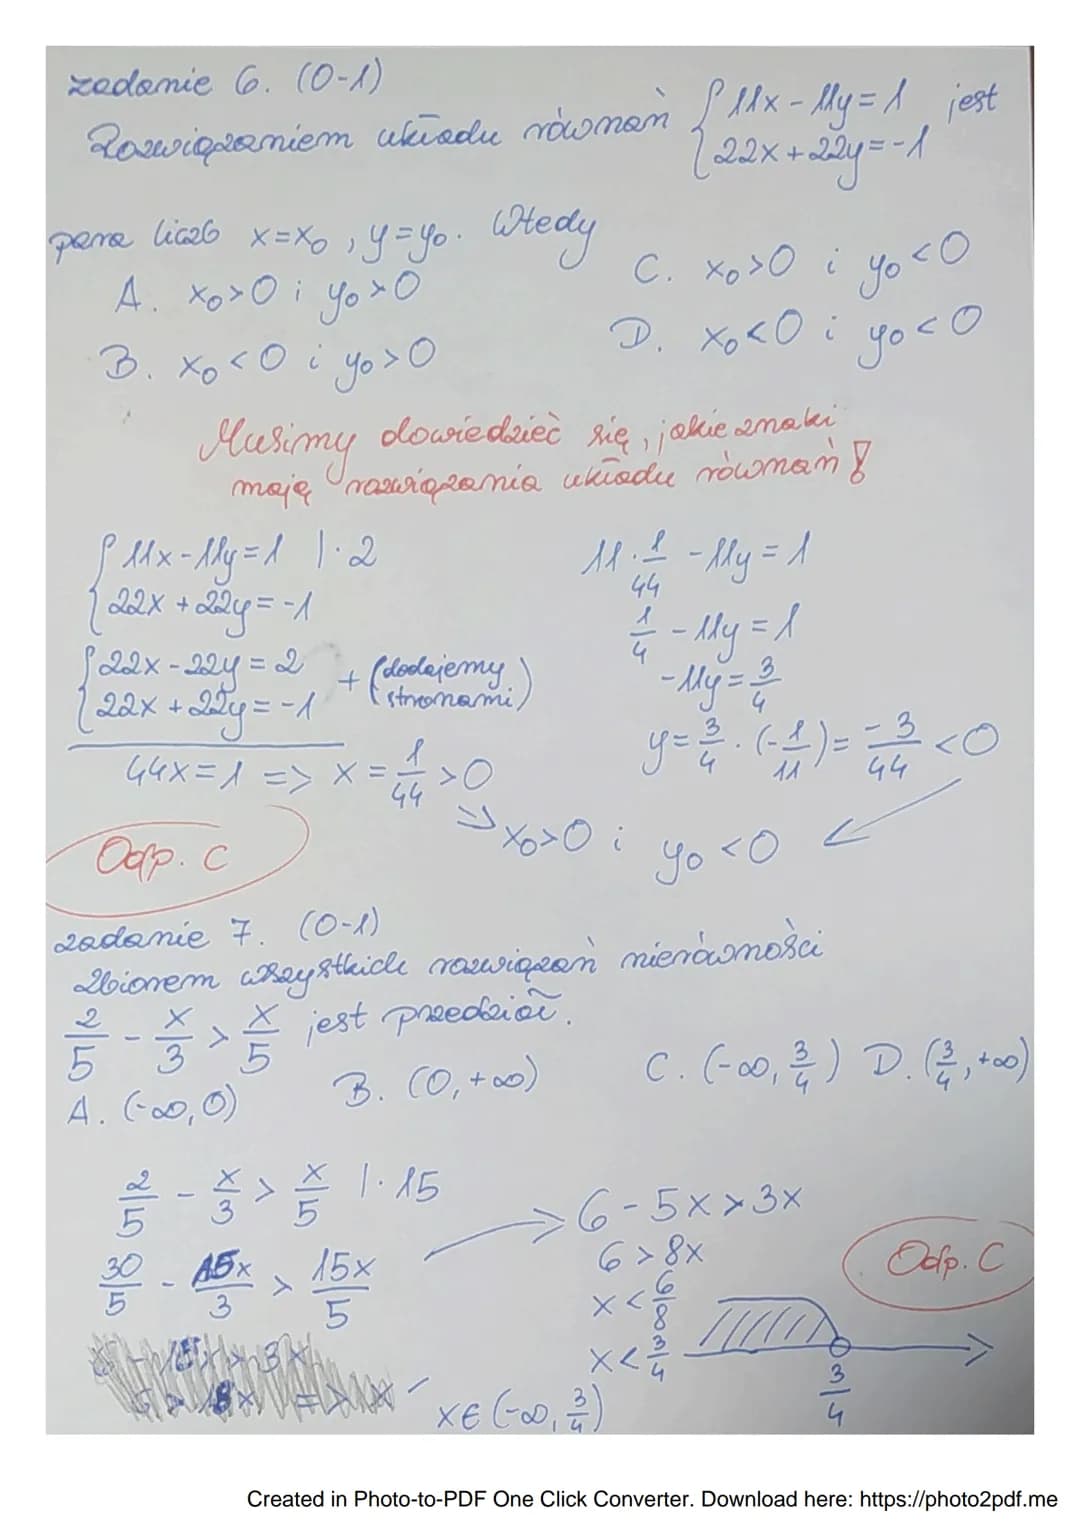 zadanie 6. (0-1)
Rozwiązaniem układu równań { 11x - 11y = 1
22x + 22y = -1 jest
para liczb x=x₀, y=y₀. Wtedy
A. x₀>0 i y₀>0
B. x₀<0 i y₀>0
C. x₀>0 i y₀<0
D. x₀<0 i y₀<0
Musimy dowiedzieć się, jakie znaki
mają rozwiązania układu równań!
{ 11x - 11y = 1 |·2
22x + 22y = -1
{ 22x - 22y = 2
22x + 22y = -1 + (dodajemy stronami)
44x = 1 => x = 1/44 > 0
11 · 1/44 - 11y = 1
1/4 - 11y = 1
-11y = 3/4
y = 3/4 · (-1/11) = -3/44 < 0
=> x₀>0 i y₀<0
Odp. C
zadanie 7. (0-1)
Zbiorem wszystkich rozwiązań nierówności
2/5 - x/3 > x/5 jest przedział.
A. (-∞, 0) B. (0, +∞) C. (-∞, 3/4) D. (3/4, +∞)
2/5 - x/3 > x/5 |·15
30/5 - 15x/3 > 15x/5
6 - 5x > 3x
6 > 8x
x < 6/8
x < 3/4
3/4
x ∈ (-∞, 3/4)
Odp. C
Created in Photo-to-PDF One Click Converter. Download here: https://photo2pdf.me